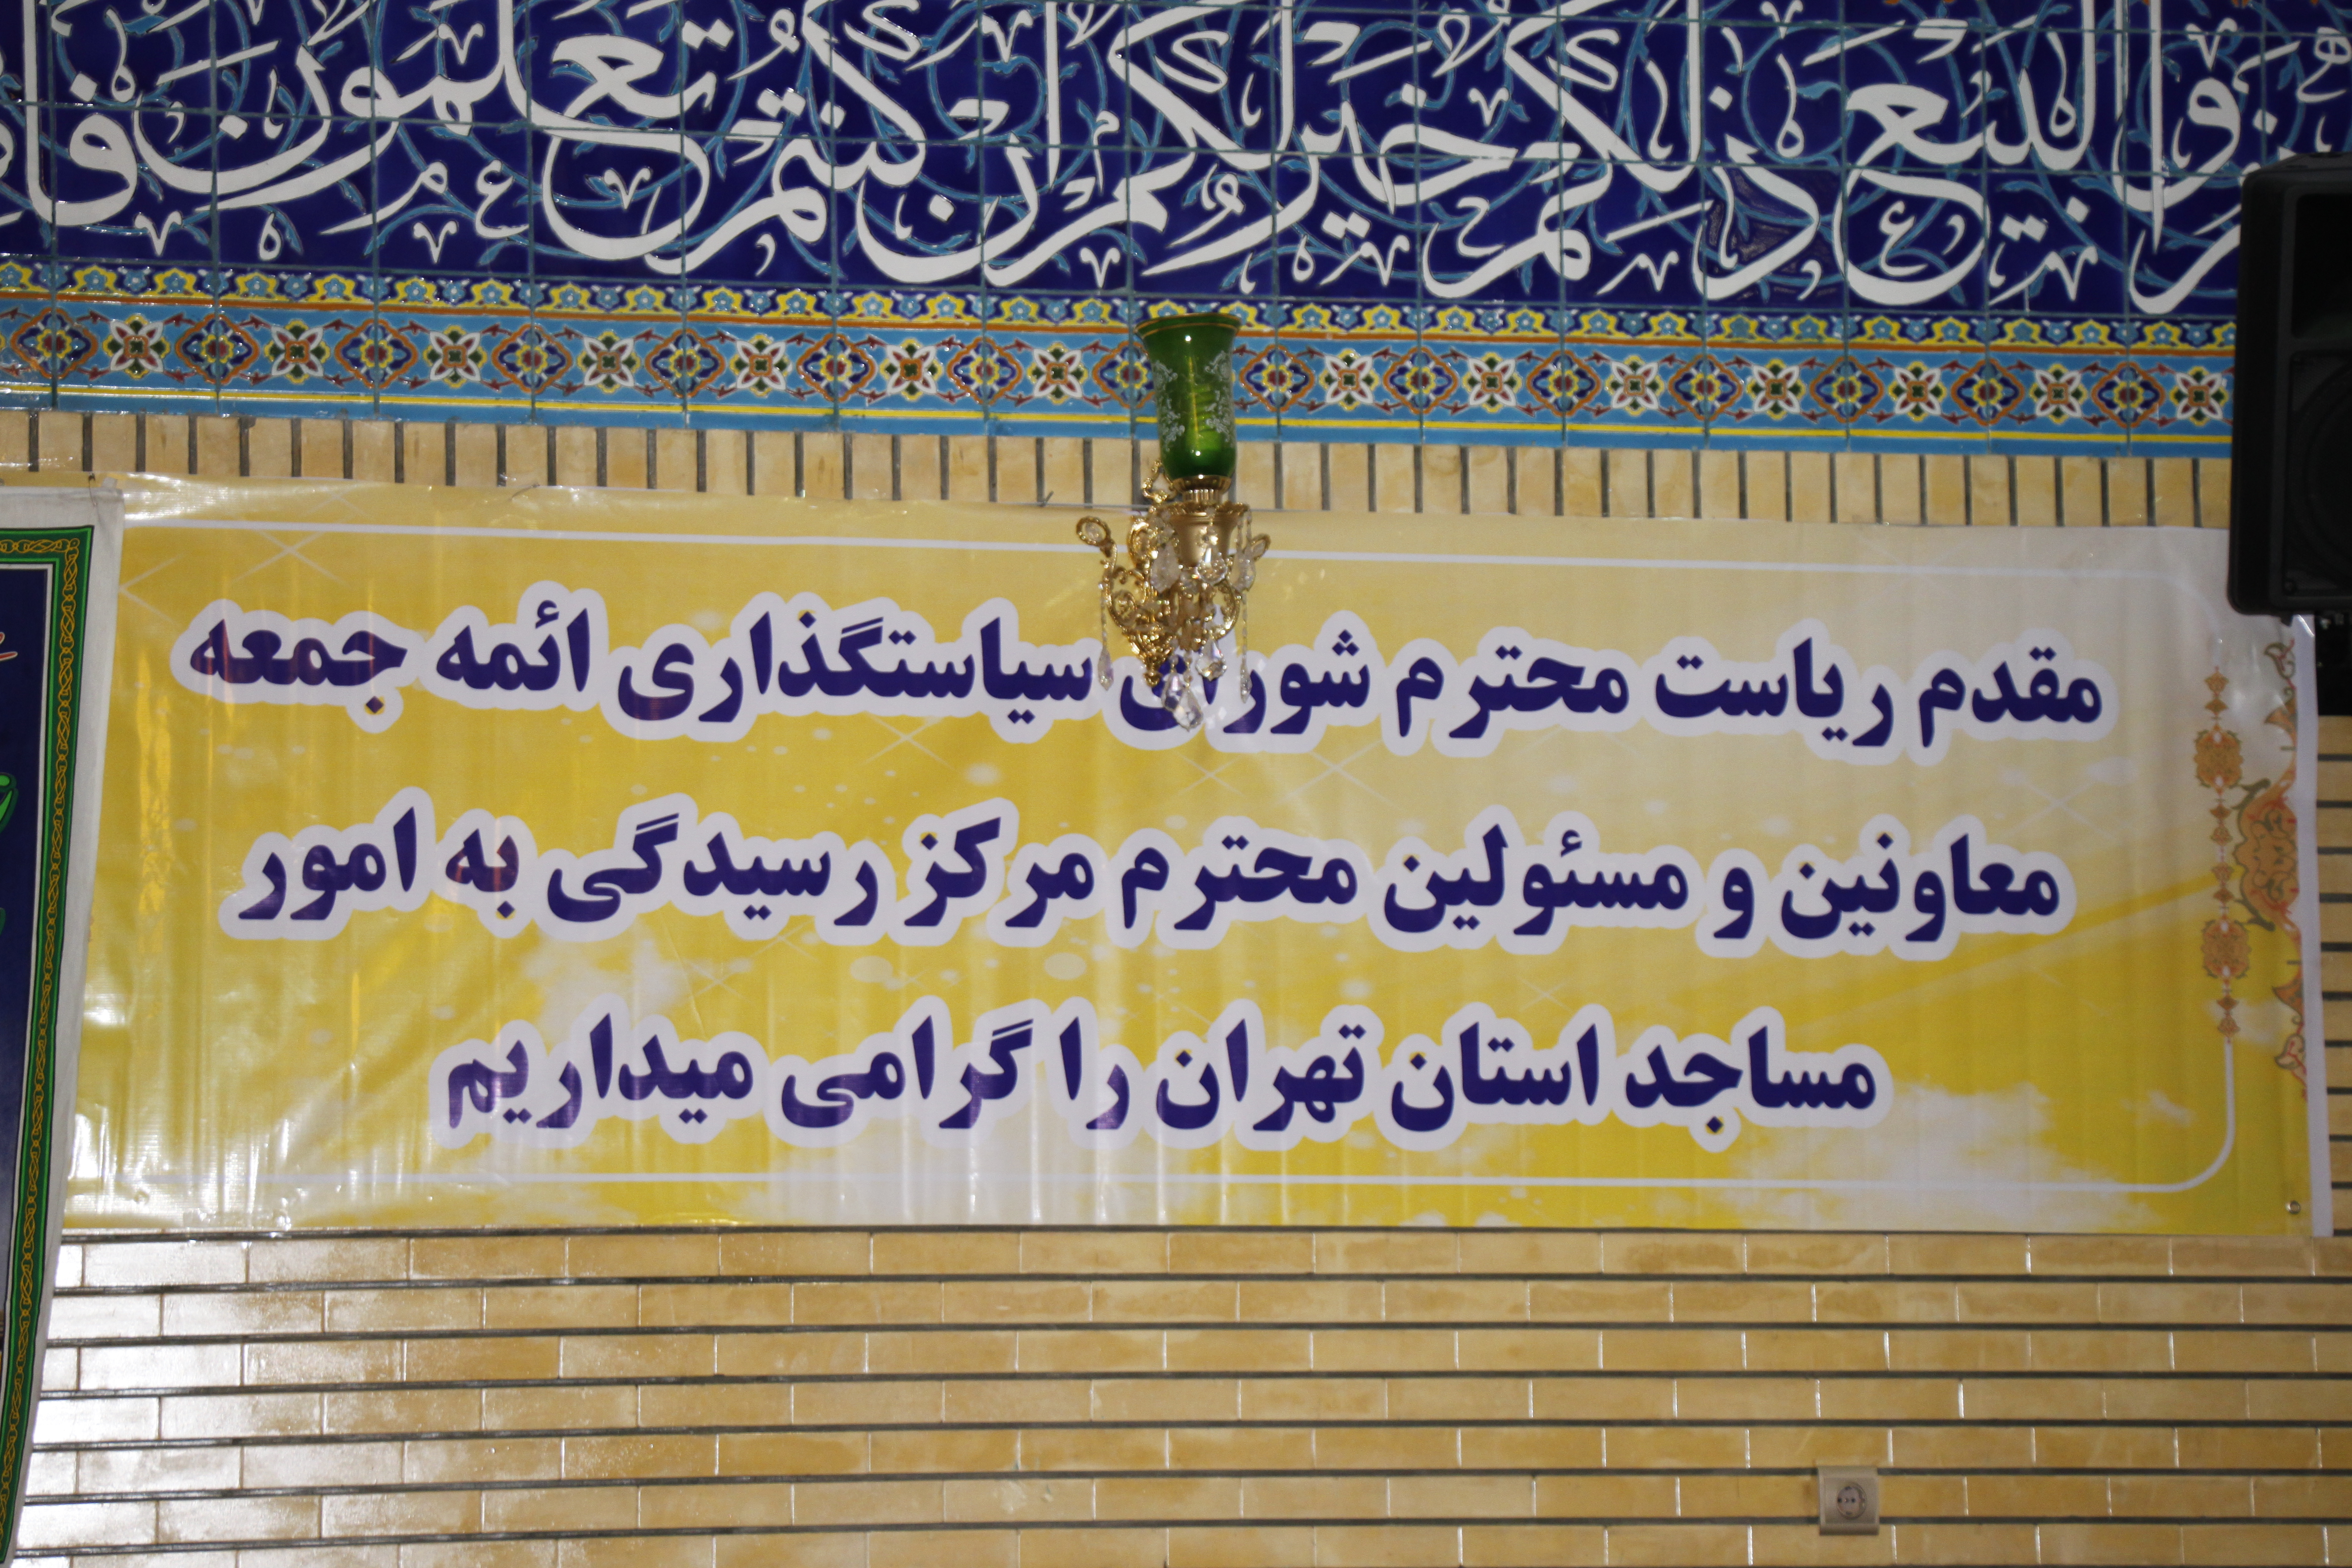 وا البيع ذلكم خير لكم ان كنتم تعلمون فا
مقدم ریاست محترم شورای سیاستگذاری ائمه جمعه
معاونین و مسئولین محترم مرکز رسیدگی به امور
مساجد استان تهران را گرامی میداریم